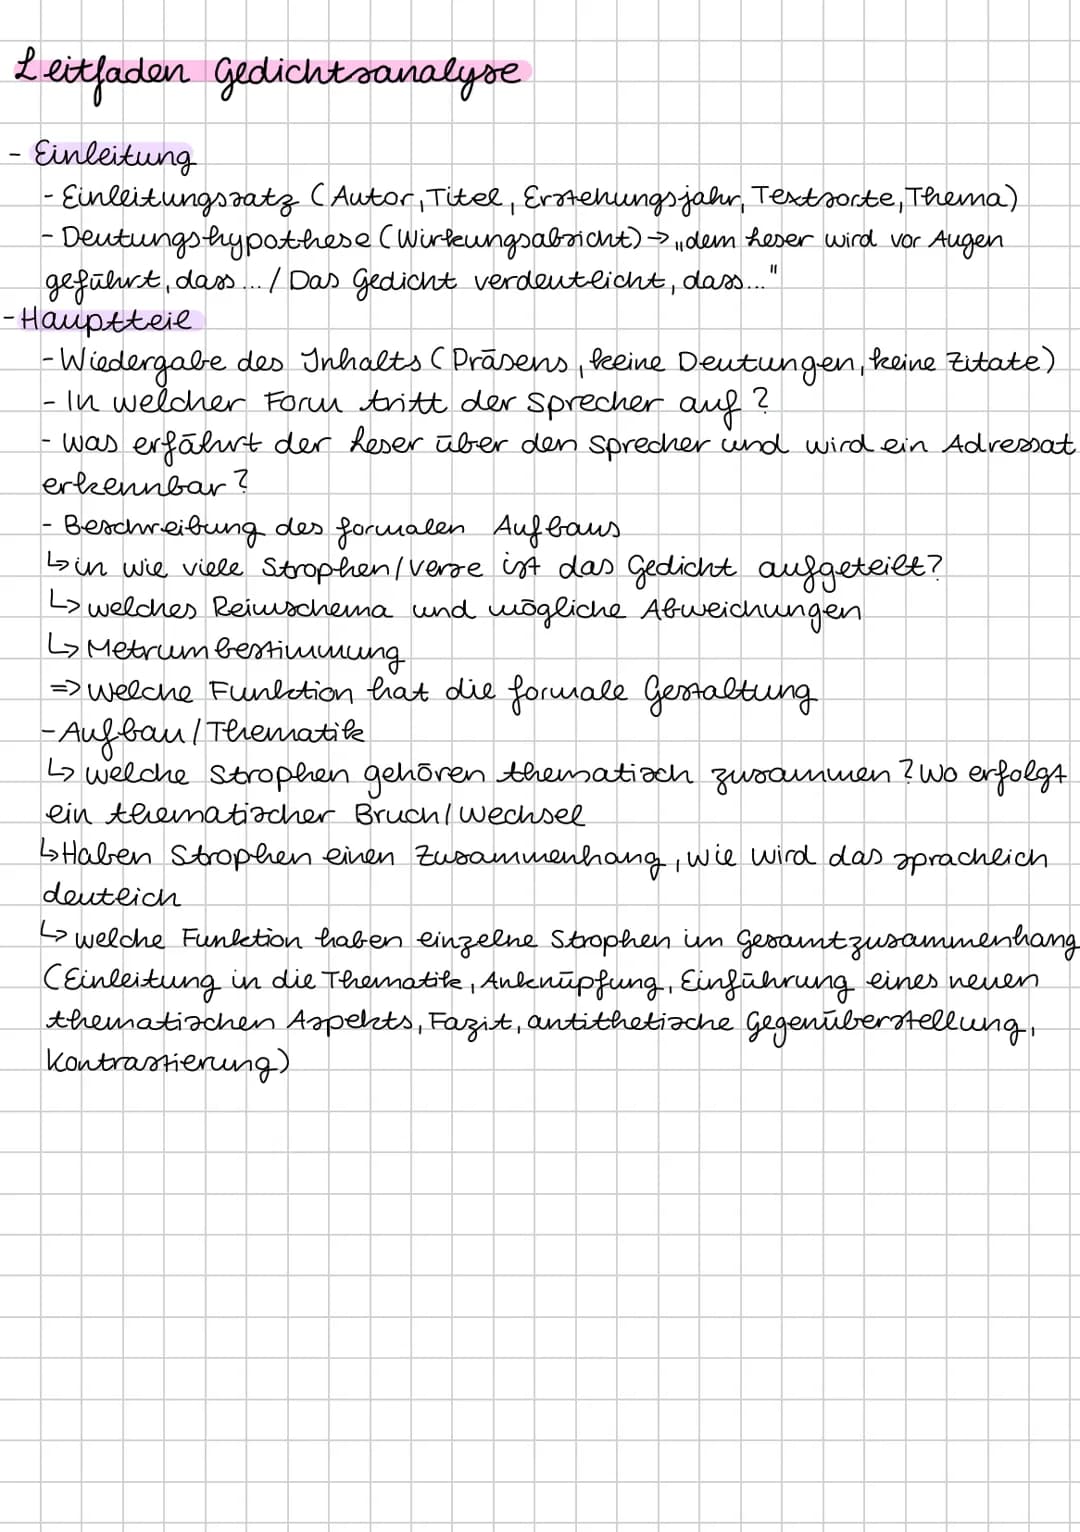 Leitfaden Gedichtsanalyse
- Einleitung
- Einleitungssatz (Autor, Titel, Erstehungsjahr, Textsorte, Thema)
- Deutungshypothese (Wirkungsabsicht) → „dem Leser wird vor Augen
geführt, dass ... / Das Gedicht verdeutlicht, dass..."
- Hauptteil
- Wiedergabe des Inhalts (Präsens, keine Deutungen, keine Zitate)
- In welcher Form tritt der Sprecher auf?
- Was erfährt der Leser über den Sprecher und wird ein Adressat
erkennbar?
- Beschreibung des formalen Aufbaus
↳ in wie viele Strophen/Verse ist das Gedicht aufgeteilt?
↳ welches Reimschema und mögliche Abweichungen
↳ Metrumbestimmung
=> welche Funktion hat die formale Gestaltung
- Aufbau/Thematik
↳ welche Strophen gehören thematisch zusammen? Wo erfolgt
ein thematischer Bruch/Wechsel
↳ Haben Strophen einen Zusammenhang, wie wird das sprachlich
deutlich
↳ welche Funktion haben einzelne Strophen im Gesamtzusammenhang
(Einleitung in die Thematik, Anknüpfung, Einführung eines neuen
thematischen Aspekts, Fazit, antithetische Gegenüberstellung,
Kontrastierung)